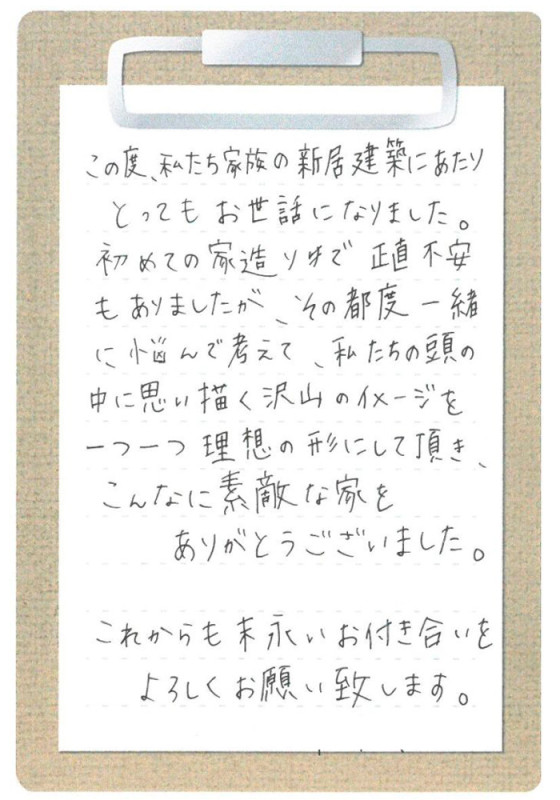 この度、私たち家族の新居建築にあたり
とってもお世話になりました。
初めての家造りゆで 正直不安
もありましたが、その都度一緒
に、悩んで考えて、私たちの頭の
中に思い描く沢山のイメージを
一つ一つ理想の形にして頂き、
こんなに素敵な家を
ありがとうございました。
これからも末永いお付き合いを
よろしくお願い致します。